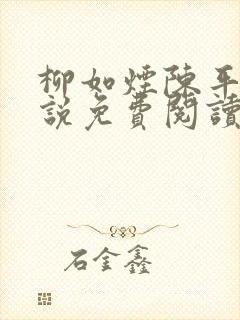 柳如煙陳平
說免費閱讀
石金鑫